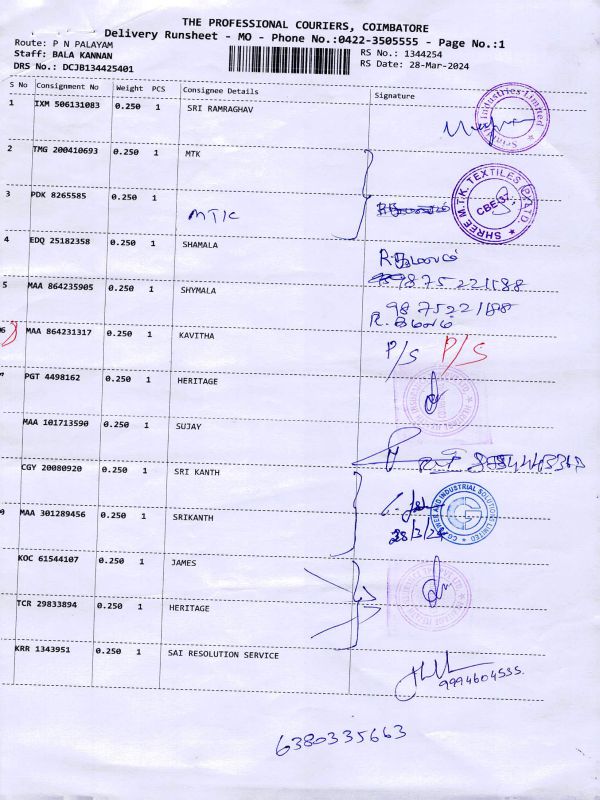 THE PROFESSIONAL COURIERS, COIMBATORE
Delivery Runsheet - MO - Phone No.:0422-3505555 - Page No.:1
Route: P N PALAYAM
RS No.: 1344254
Staff: BALA KANNAN
RS Date: 28-Mar-2024
DRS No.: DCJB134425401
S No Consignment No Weight PCS Consignee Details Signature
1 IXM 506131083 0.250 1 SRI RAMRAGHAV
Industries Limited
2 TMG 200410693 0.250 1 MTK
3 PDK 8265585 0.250 1 MTK
SHREE M.T.K. TEXTILES (P) LTD. CBE-37.
4 EDQ 25182358 0.250 1 SHAMALA
9875221188
5 MAA 864235905 0.250 1 SHYMALA
9875221188
6 MAA 864231317 0.250 1 KAVITHA
P/S P/S
PGT 4498162 0.250 1 HERITAGE
MAA 101713590 0.250 1 SUJAY
CGY 20080920 0.250 1 SRI KANTH
9 MAA 301289456 0.250 1 SRIKANTH
28/3/24
AND INDUSTRIAL SOLUTIONS LIMITED
KOC 61544107 0.250 1 JAMES
TCR 29833894 0.250 1 HERITAGE
KRR 1343951 0.250 1 SAI RESOLUTION SERVICE
9994604535.
6380335663